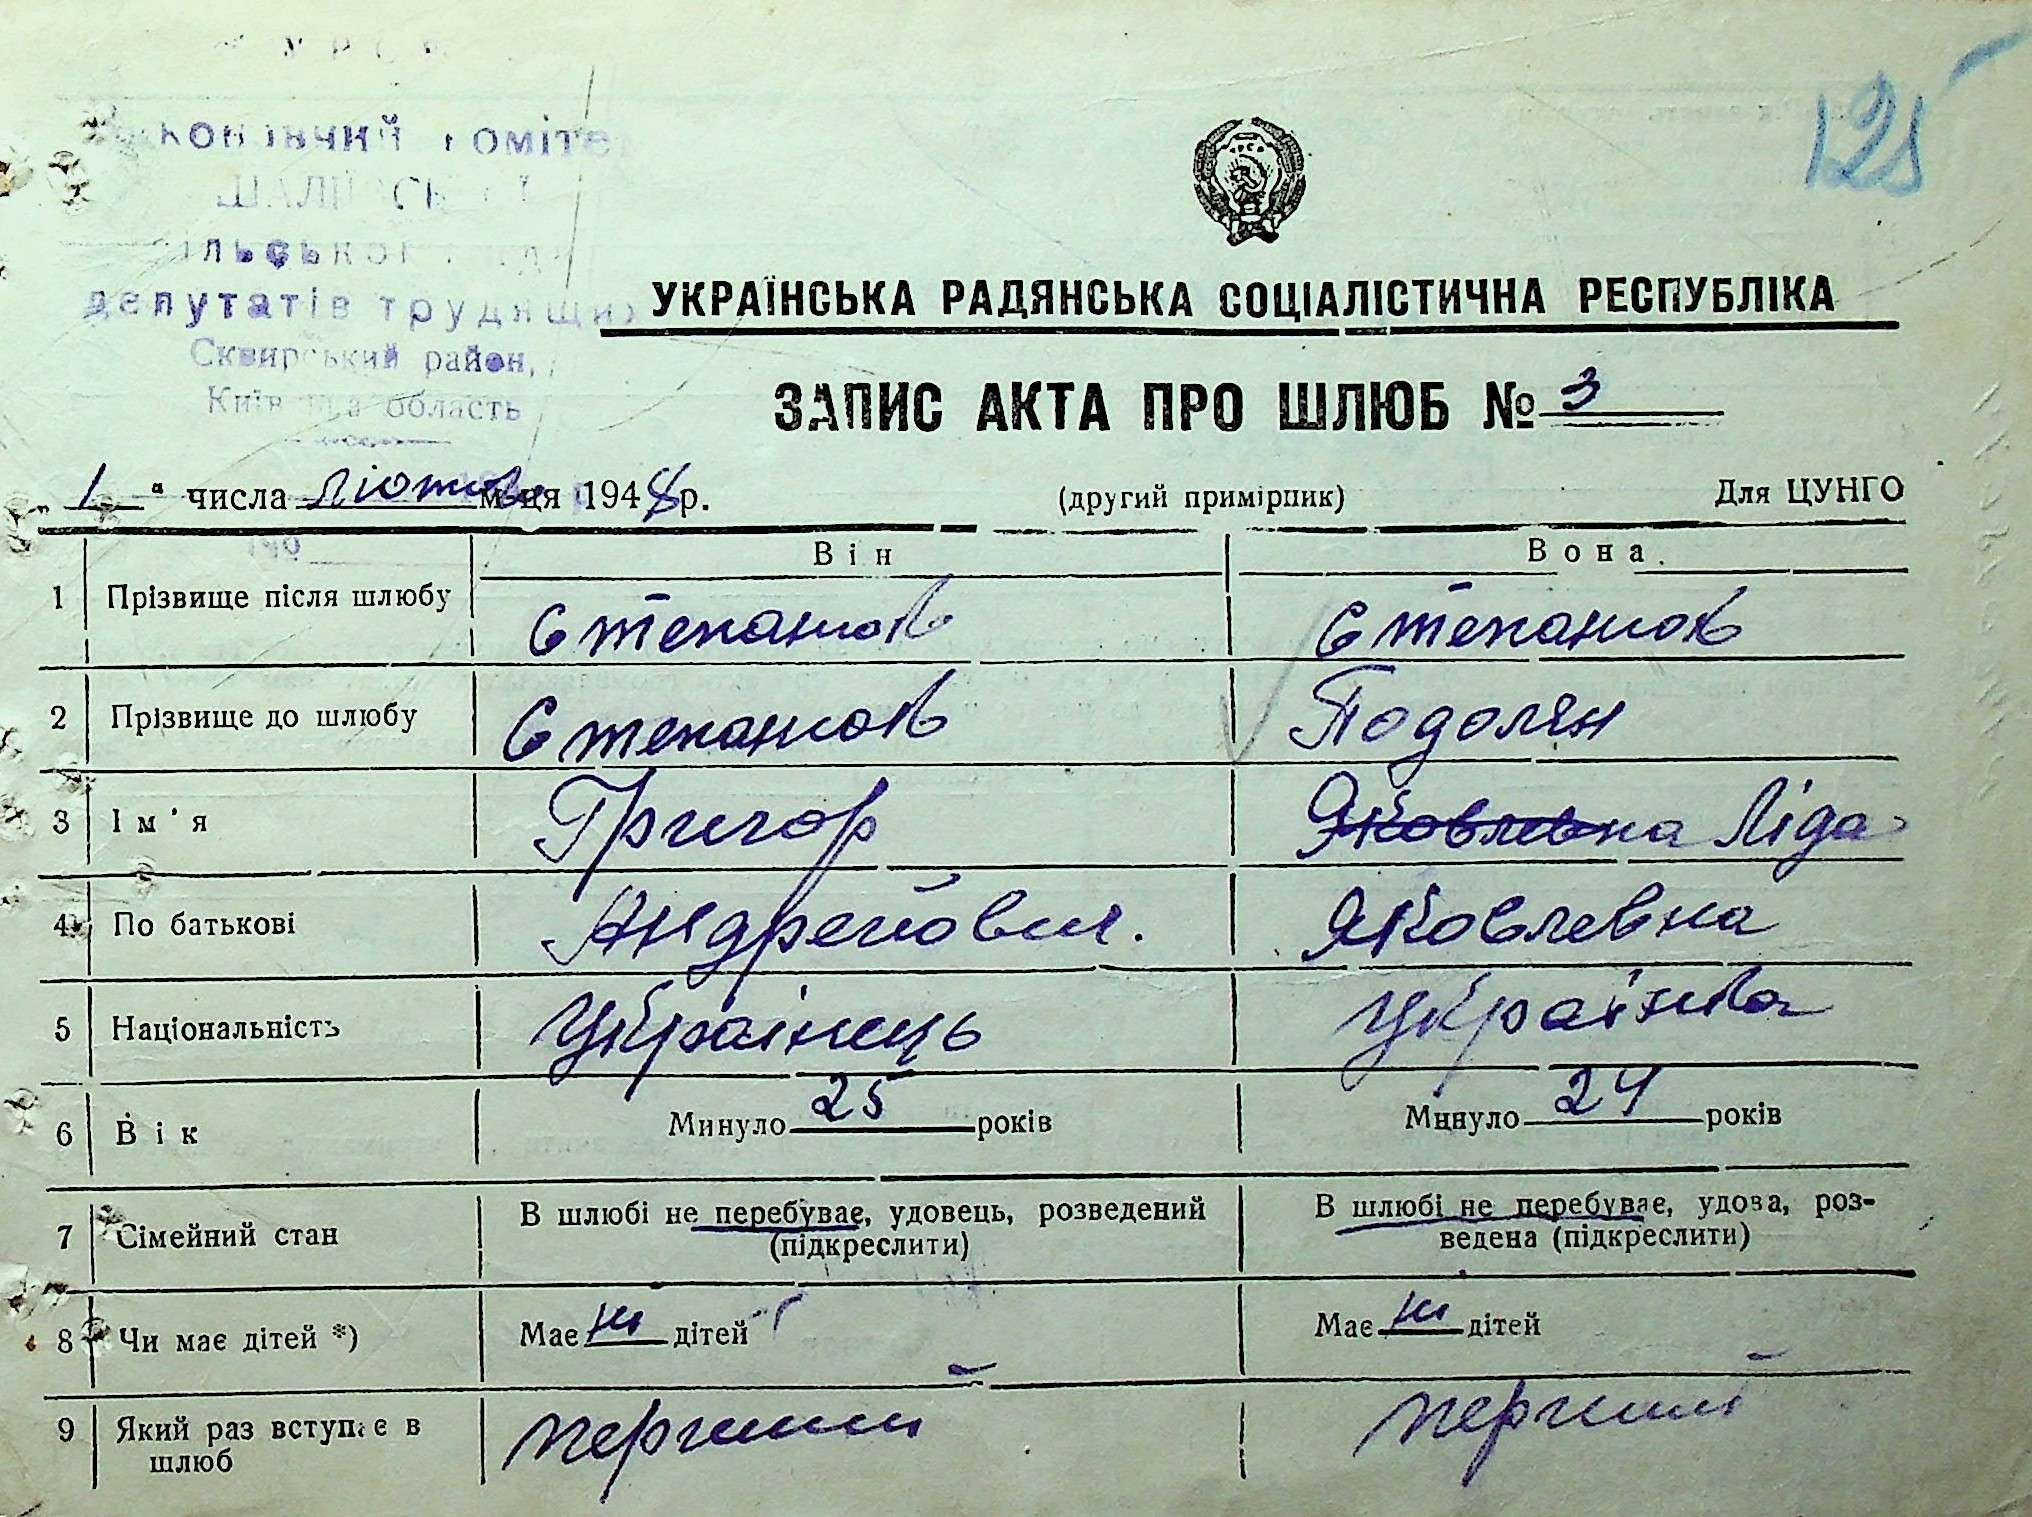 125
депутатів трудящих
Сквирський район,
Київська область
УКРАЇНСЬКА РАДЯНСЬКА СОЦІАЛІСТИЧНА РЕСПУБЛІКА
ЗАПИС АКТА ПРО ШЛЮБ № 3
„ 1 “ числа лютого м-ця 1948 р. (другий примірник) Для ЦУНГО
Він Вона
1 Прізвище після шлюбу Степанюк Степанюк
2 Прізвище до шлюбу Степанюк Подолян
3 Ім'я Григор Яковлевна Ліда
4 По батькові Андрейович. Яковлевна
5 Національність Українець Українка
6 Вік Минуло 25 років Минуло 24 років
7 Сімейний стан В шлюбі не перебуває, удовець, розведений В шлюбі не перебуває, удова, роз-
(підкреслити) ведена (підкреслити)
8 Чи має дітей *) Має ні дітей Має ні дітей
9 Який раз вступає в перший перший
шлюб